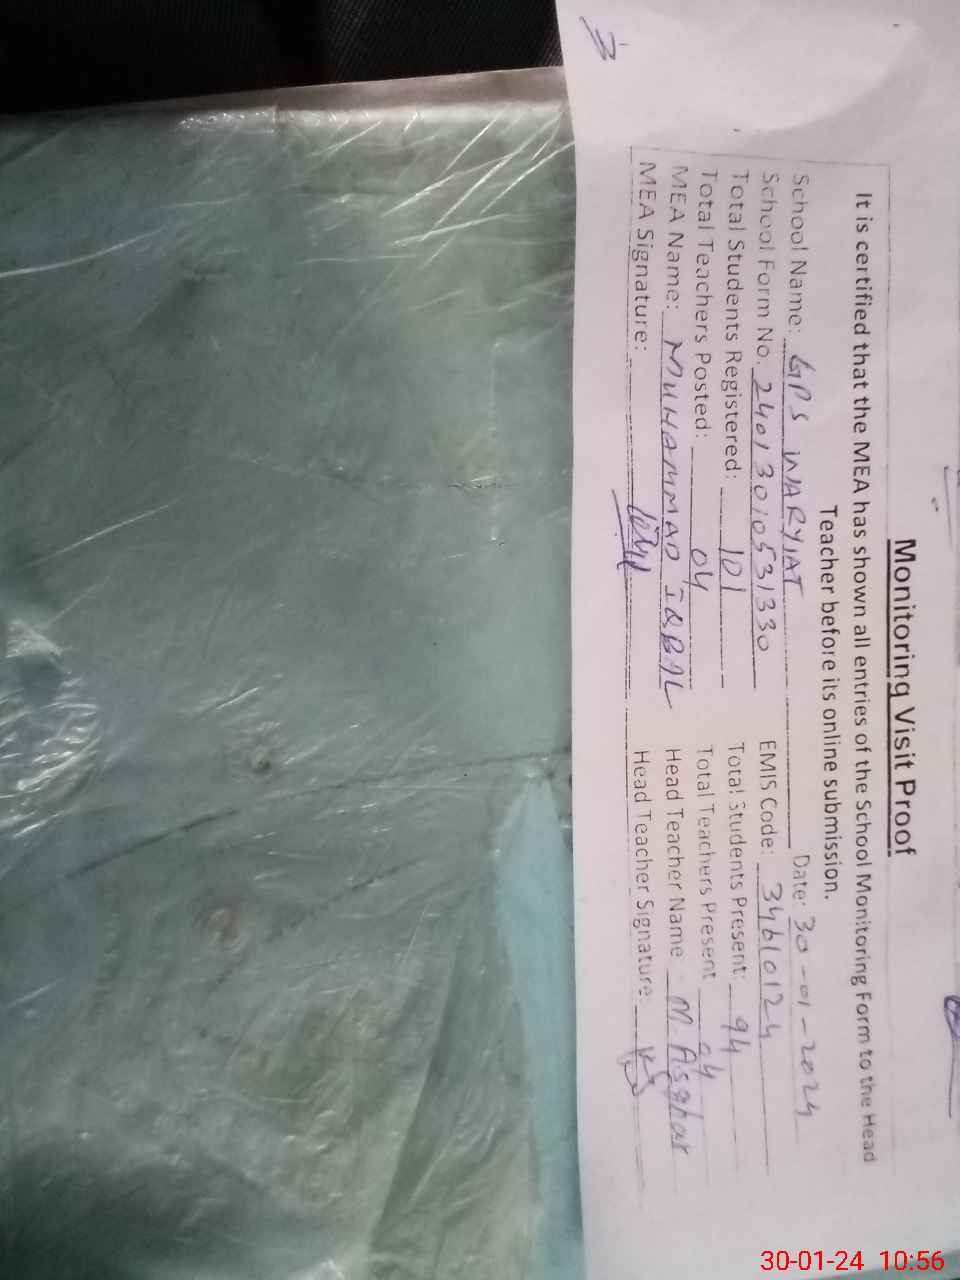 Monitoring Visit Proof
It is certified that the MEA has shown all entries of the School Monitoring Form to the Head
Teacher before its online submission.
School Name: GPS WARYIAT Date: 30-01-2024
School Form No. 24013010531330 EMIS Code: 34610124
Total Students Registered: 101 Total Students Present: 94
Total Teachers Posted: 04 Total Teachers Present 04
MEA Name: MUHAMMAD IQBAL Head Teacher Name M. Asghar
MEA Signature: Head Teacher Signature:
30-01-24 10:56